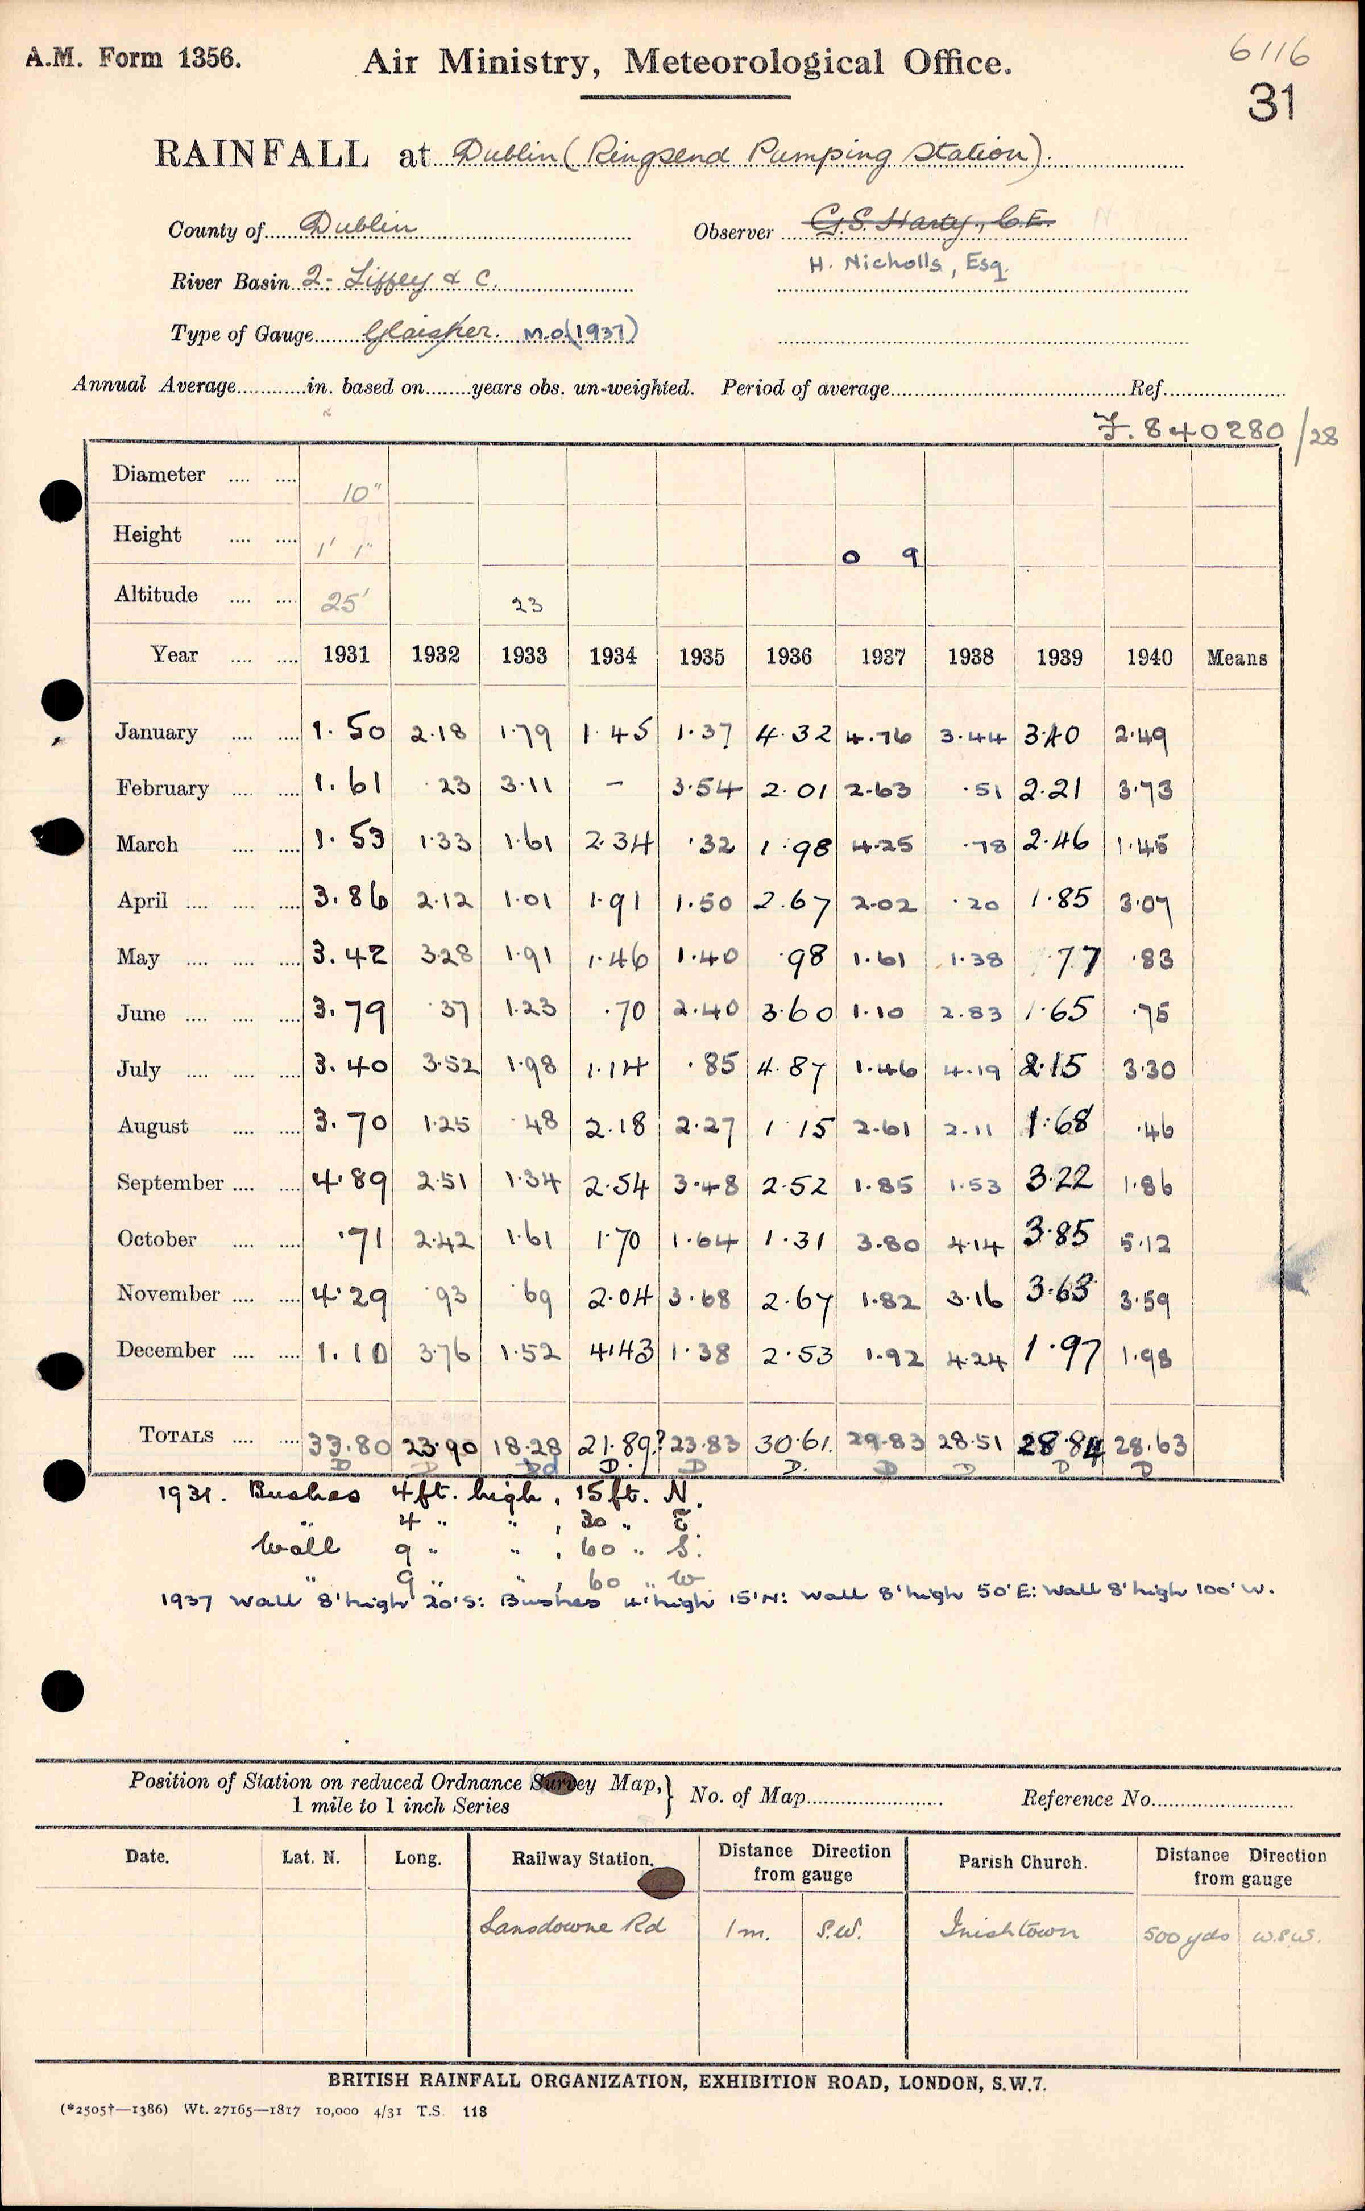 A.M. Form 1356.
Air Ministry, Meteorological Office.
6116
31
RAINFALL at Dublin (Ringsend Pumping Station).
County of Dublin
Observer G.S. Harty, C.E.
H. Nicholls, Esq.
River Basin 2:- Liffey & C.
Type of Gauge Glaisher. M.O. (1937)
Annual Average in. based on years obs. un-weighted. Period of average Ref.
J. 840280/28
Diameter 10"
Height 1' 1" 0 9
Altitude 25' 23
Year 1931 1932 1933 1934 1935 1936 1937 1938 1939 1940 Means
January 1.50 2.18 1.79 1.45 1.37 4.32 4.76 3.44 3.40 2.49
February 1.61 .23 3.11 - 3.54 2.01 2.63 .51 2.21 3.73
March 1.53 1.33 1.61 2.34 .32 1.98 4.25 .78 2.46 1.45
April 3.86 2.12 1.01 1.91 1.50 2.67 2.02 .20 1.85 3.07
May 3.42 3.28 1.91 1.46 1.40 .98 1.61 1.38 .77 .83
June 3.79 .37 1.23 .70 2.40 3.60 1.10 2.83 1.65 .75
July 3.40 3.52 1.98 1.14 .85 4.87 1.46 4.19 2.15 3.30
August 3.70 1.25 .48 2.18 2.27 1.15 2.61 2.11 1.68 .46
September 4.89 2.51 1.34 2.54 3.48 2.52 1.85 1.53 3.22 1.86
October .71 2.42 1.61 1.70 1.64 1.31 3.80 4.14 3.85 5.12
November 4.29 .93 .69 2.04 3.68 2.67 1.82 3.16 3.63 3.59
December 1.10 3.76 1.52 4.43 1.38 2.53 1.92 4.24 1.97 1.98
TOTALS 33.80 23.90 18.28 21.89? 23.83 30.61. 29.83 28.51 28.84 28.63
D D Dd D. D D. D D D D
1931. Bushes 4ft. high, 15ft. N.
" 4 " " , 30 " E.
Wall 9 " " , 60 " S.
" 9 " " , 60 " W
1937 Wall 8' high 20' S: Bushes 4' high 15' N: Wall 8' high 50' E: Wall 8' high 100' W.
Position of Station on reduced Ordnance Survey Map, } No. of Map Reference No.
1 mile to 1 inch Series
Date. Lat. N. Long. Railway Station. Distance Direction from gauge Parish Church. Distance Direction from gauge
Lansdowne Rd 1 m. S.W. Irishtown 500 yds W.S.W.
BRITISH RAINFALL ORGANIZATION, EXHIBITION ROAD, LONDON, S.W.7.
(*2505†—1386) Wt. 27165—1817 10,000 4/31 T.S. 118